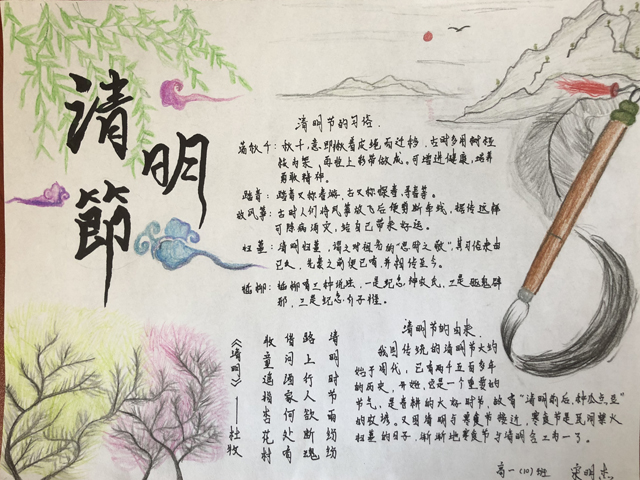 清明節
清明节的习俗.
荡秋千: 秋千,意即揪着皮绳而迁移,古时多用树桠
枝为架,再拴上彩带做成。可增进健康,培养
勇敢精神。
踏青: 踏青又称春游,古又称探春、寻春等。
放风筝: 古时人们将风筝放飞后便剪断牵线,据传这样
可除病消灾,给自己带来好运。
扫墓: 清明扫墓,谓之对祖先的“思时之敬”,其习俗来由
已久,先秦之前便已有,并相传至今。
插柳: 插柳有三种说法,一是纪念神农氏,二是驱鬼辟
邪,三是纪念介子推。
清明时节雨纷纷
路上行人欲断魂
借问酒家何处有
牧童遥指杏花村
《清明》——杜牧
清明节的由来.
我国传统的清明节大约
始于周代,已有两千五百多年
的历史,开始它是一个重要的
节气,是春耕的大好时节,故有“清明前后,种瓜点豆”
的农谚。又因清明与寒食节接近,寒食节是民间禁火
扫墓的日子,渐渐地寒食节与清明合二为一了。
高一(10)班